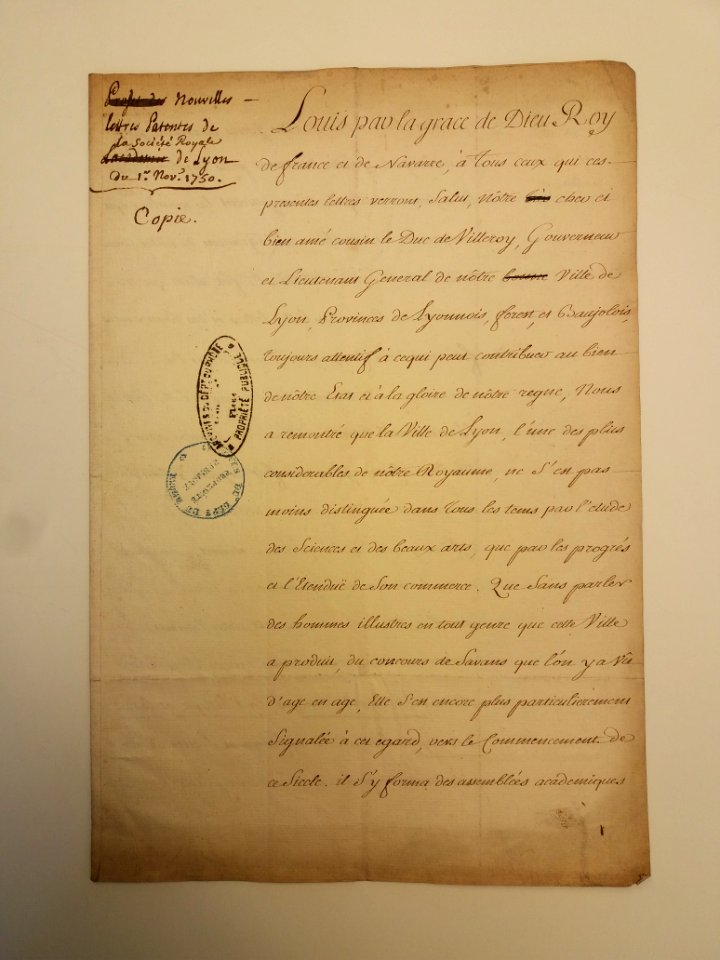 Projet des Nouvelles —
lettres Patentes de
la Société Royale
Academie de Lyon
Du 1.er Nov.e 1750.
Copie.
Louis par la grace de Dieu Roy
de france et de Navarre, à Tous ceux qui ces
presentes lettres verront, Salut, Nôtre cher et
bien amé cousin le Duc de Villeroy, Gouverneur
et Lieutenant General de nôtre bonne Ville de
Lyon, Provinces de Lyonnois, forest, et Baujolois,
Toujours attentif à ce qui peut contribuer au bien
de nôtre Etat et à la gloire de nôtre regne, Nous
a remontré que la Ville de Lyon, l'une des plus
considerables de nôtre Royaume, ne S'en pas
moins distinguée dans Tous les tems par l'etude
des Sciences et des beaux arts, que par les progrés
et l'Etenduë de Son commerce. Que Sans parler
des hommes illustres en tout genre que cette Ville
a produit, du concours de Savans que l'on y a Vû
d'age en age, Elle S'en encore plus particulierement
Signalée à cet egard, vers le Commencement de
ce Siecle. il S'y forma des assemblées académiques
1
ARCHIVES DU DÉPT DU RHÔNE
PROPRIÉTÉ PUBLIQUE
DEPT DU RHÔNE